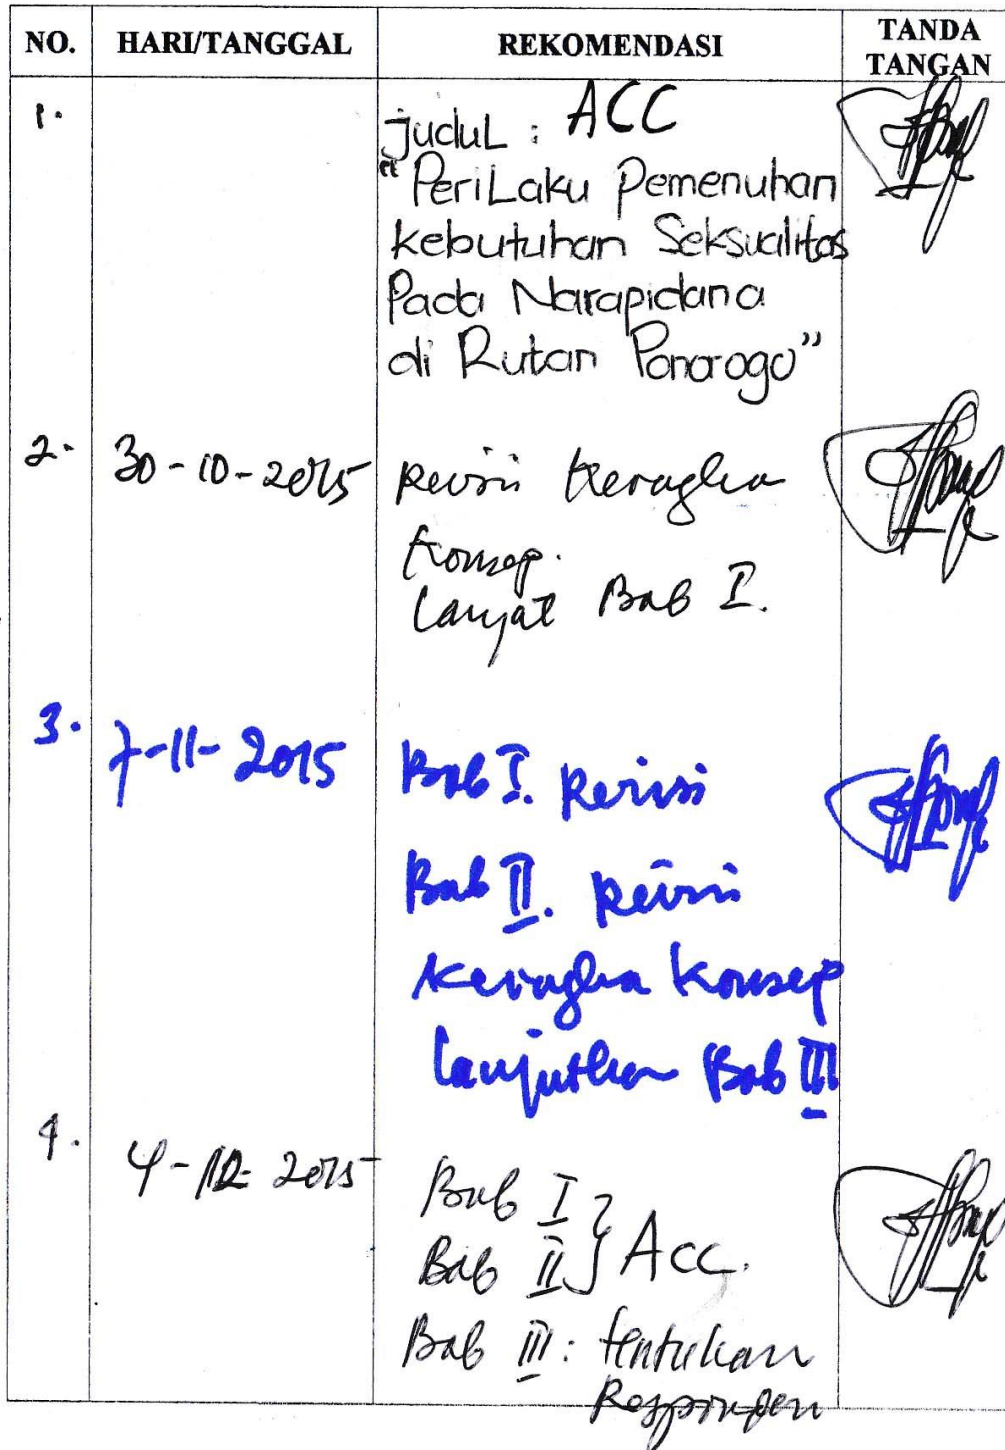 NO. HARI/TANGGAL REKOMENDASI TANDA TANGAN
1. Judul : ACC
"Perilaku Pemenuhan
kebutuhan Seksualitas
Pada Narapidana
di Rutan Ponorogo"
2. 30-10-2015 Revisi Kerangka
Konsep.
Lanjut Bab I.
3. 7-11-2015 Bab I. Revisi
Bab II. Revisi
Kerangka Konsep
Lanjutkan Bab III
4. 4-12-2015 Bab I } Acc.
Bab II
Bab III : tentukan
Responden